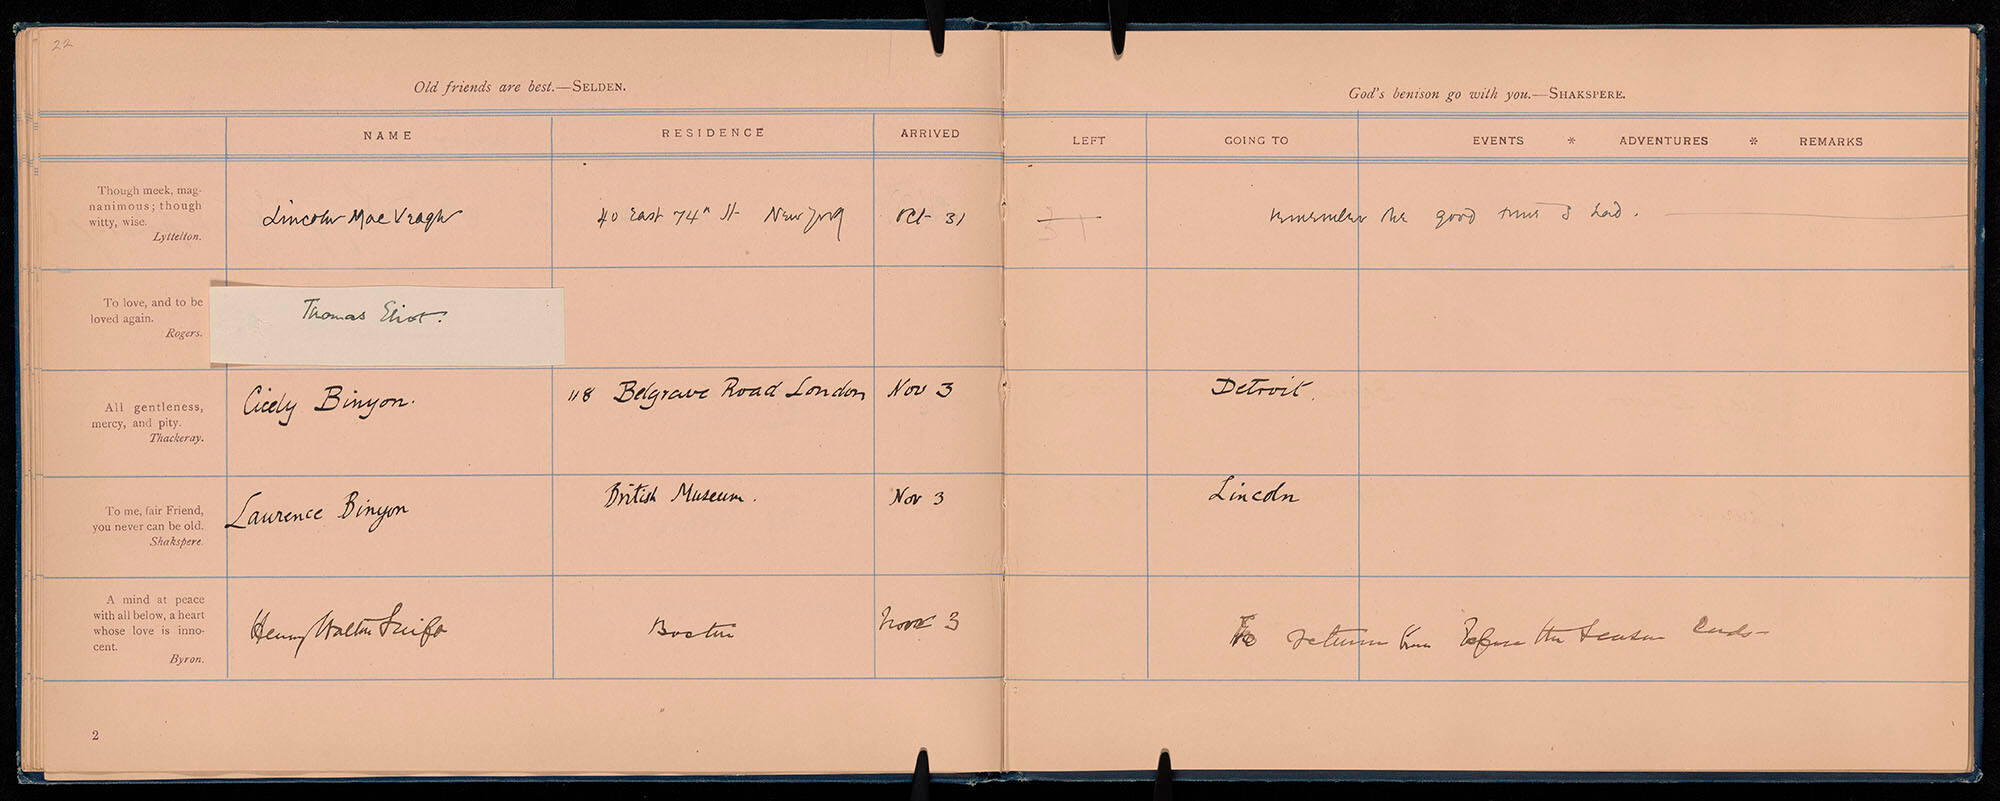 22
Old friends are best.—SELDEN.
God's benison go with you.—SHAKSPERE.
NAME RESIDENCE ARRIVED LEFT GOING TO EVENTS * ADVENTURES * REMARKS
Though meek, mag-
nanimous; though
witty, wise.
Lyttelton.
Lincoln MacVeagh 40 East 74th St New York Oct 31 remember the good time I had.
31
To love, and to be
loved again.
Rogers.
Thomas Eliot.
All gentleness,
mercy, and pity.
Thackeray.
Cicely Binyon. 118 Belgrave Road London Nov 3 Detroit.
To me, fair Friend,
you never can be old.
Shakspere.
Laurence Binyon British Museum. Nov 3 Lincoln
A mind at peace
with all below, a heart
whose love is inno-
cent.
Byron.
Henry Walton Swift Boston Nov 3 To return here before the season ends—
2